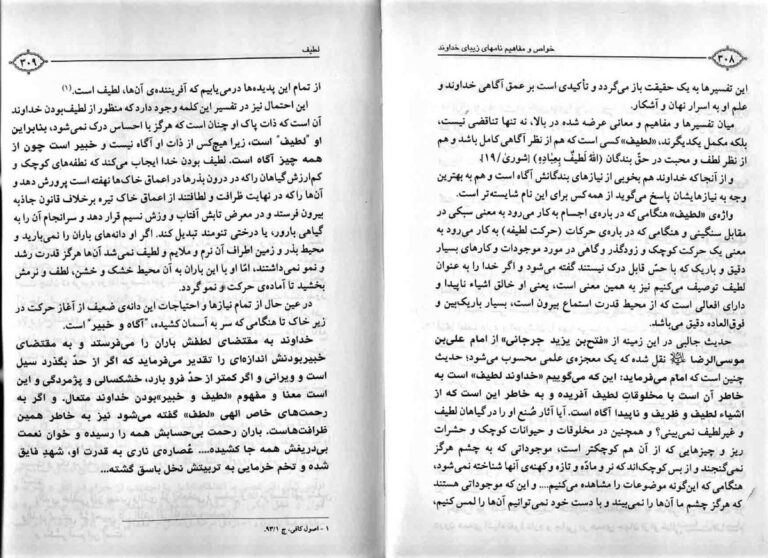 خواص و مفاهیم نامهای زیبای خداوند
۳۰۸
این تفسیرها به یک حقیقت باز می‌گردد و تأکیدی است بر عمق آگاهی خداوند و
علم او به اسرار نهان و آشکار.
میان تفسیرها و مفاهیم و معانی عرضه شده در بالا، نه تنها تناقضی نیست،
بلکه مکمل یکدیگرند، «لطیف» کسی است که هم از نظر آگاهی کامل باشد و هم
از نظر لطف و محبت در حقّ بندگان (اللهُ لَطیفٌ بِعِبادِهِ) [شوری/۱۹].
و از آنجا که خداوند هم بخوبی از نیازهای بندگانش آگاه است و هم به بهترین
وجه به نیازهایشان پاسخ می‌گوید از همه‌کس برای این نام شایسته‌تر است.
واژه‌ی «لطیف» هنگامی که در باره‌ی اجسام به کار می‌رود به معنی سبکی در
مقابل سنگینی و هنگامی که در باره‌ی حرکات (حرکت لطیفه) به کار می‌رود به
معنی یک حرکت کوچک و زودگذر و گاهی در مورد موجودات و کارهای بسیار
دقیق و باریک که با حسّ قابل درک نیستند گفته می‌شود و اگر خدا را به عنوان
لطیف توصیف می‌کنیم نیز به همین معنی است، یعنی او خالق اشیاء ناپیدا و
دارای افعالی است که از محیط قدرت استماع بیرون است، بسیار باریک‌بین و
فوق‌العاده دقیق می‌باشد.
حدیث جالبی در این زمینه از «فتح‌بن یزید جرجانی» از امام علی‌بن
موسی‌الرضا نقل شده که یک معجزه‌ی علمی محسوب می‌شود؛ حدیث
چنین است که امام می‌فرماید: این که می‌گوییم «خداوند لطیف» است به
خاطر آن است با مخلوقاتِ لطیف آفریده و به خاطر این است که از
اشیاء لطیف و ظریف و ناپیدا آگاه است. آیا آثار صُنع او را در گیاهان لطیف
و غیرلطیف نمی‌بینی؟ و همچنین در مخلوقات و حیوانات کوچک و حشرات
ریز و چیزهایی که از آن هم کوچکتر است، موجوداتی که به چشم هرگز
نمی‌گنجند و از بس کوچک‌اند که نر و مادّه و تازه و کهنه‌ی آنها شناخته نمی‌شود،
هنگامی که این‌گونه موضوعات را مشاهده می‌کنیم.... و این که موجوداتی هستند
که هرگز چشم ما آن‌ها را نمی‌بیند و با دست خود نمی‌توانیم آن‌ها را لمس کنیم،
لطیف
۳۰۹
از تمام این پدیده‌ها درمی‌یابیم که آفریننده‌ی آن‌ها، لطیف است.(۱)
این احتمال نیز در تفسیر این کلمه وجود دارد که منظور از لطیف‌بودن خداوند
آن است که ذات پاک او چنان است که هرگز با احساس درک نمی‌شود، بنابراین
او "لطیف" است، زیرا هیچ‌کس از ذات او آگاه نیست و خبیر است چون از
همه چیز آگاه است. لطیف بودن خدا ایجاب می‌کند که نطفه‌های کوچک و
کم‌ارزش گیاهان را که در درون بذرها در اعماق خاک‌ها نهفته است پرورش دهد و
آن‌ها را که در نهایت ظرافت و لطافتند از اعماق خاک تیره برخلاف قانون جاذبه
بیرون فرستد و در معرض تابش آفتاب و وزش نسیم قرار دهد و سرانجام آن را به
گیاهی بارور، یا درختی تنومند تبدیل کند. اگر او دانه‌های باران را نمی‌بارید و
محیط بذر و زمین اطراف آن نرم و ملایم و لطیف نمی‌شد آن‌ها هرگز قدرت رشد
و نمو نمی‌داشتند، امّا او با این باران به آن محیط خشک و خشن، لطف و نرمش
بخشید تا آماده‌ی حرکت و نمو گردد.
در عین حال از تمام نیازها و احتیاجات این دانه‌ی ضعیف از آغاز حرکت در
زیر خاک تا هنگامی که سر به آسمان کشیده، "آگاه و خبیر" است.
خداوند به مقتضای لطفش باران را می‌فرستد و به مقتضای
خبیربودنش اندازه‌ای را تقدیر می‌فرماید که اگر از حد بگذرد سیل
است و ویرانی و اگر کمتر از حدّ فرو بارد، خشکسالی و پژمردگی و این
است معنا و مفهوم «لطیف و خبیر»بودن خداوند متعال. و اگر به
رحمت‌های خاص الهی «لطف» گفته می‌شود نیز به خاطر همین
ظرافت‌هاست. باران رحمت بی‌حسابش همه را رسیده و خوان نعمت
بی‌دریغش همه جا کشیده.... عُصاره‌ی تاری به قدرت او، شهدِ فایق
شده و تخم خرمایی به تربیتش نخل باسق گشته...
۱ - اصول کافی، ج ۹۳/۱.